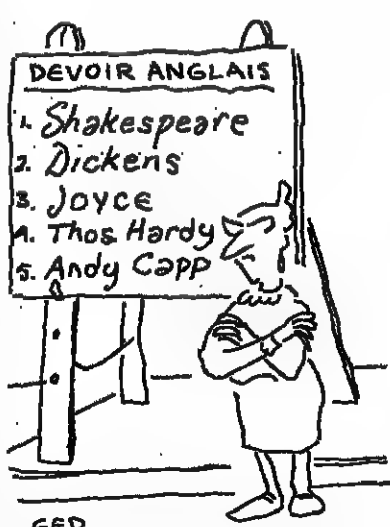 DEVOIR ANGLAIS
1. Shakespeare
2. Dickens
3. JOYCE
4. Thos Hardy
5. Andy Capp
GED